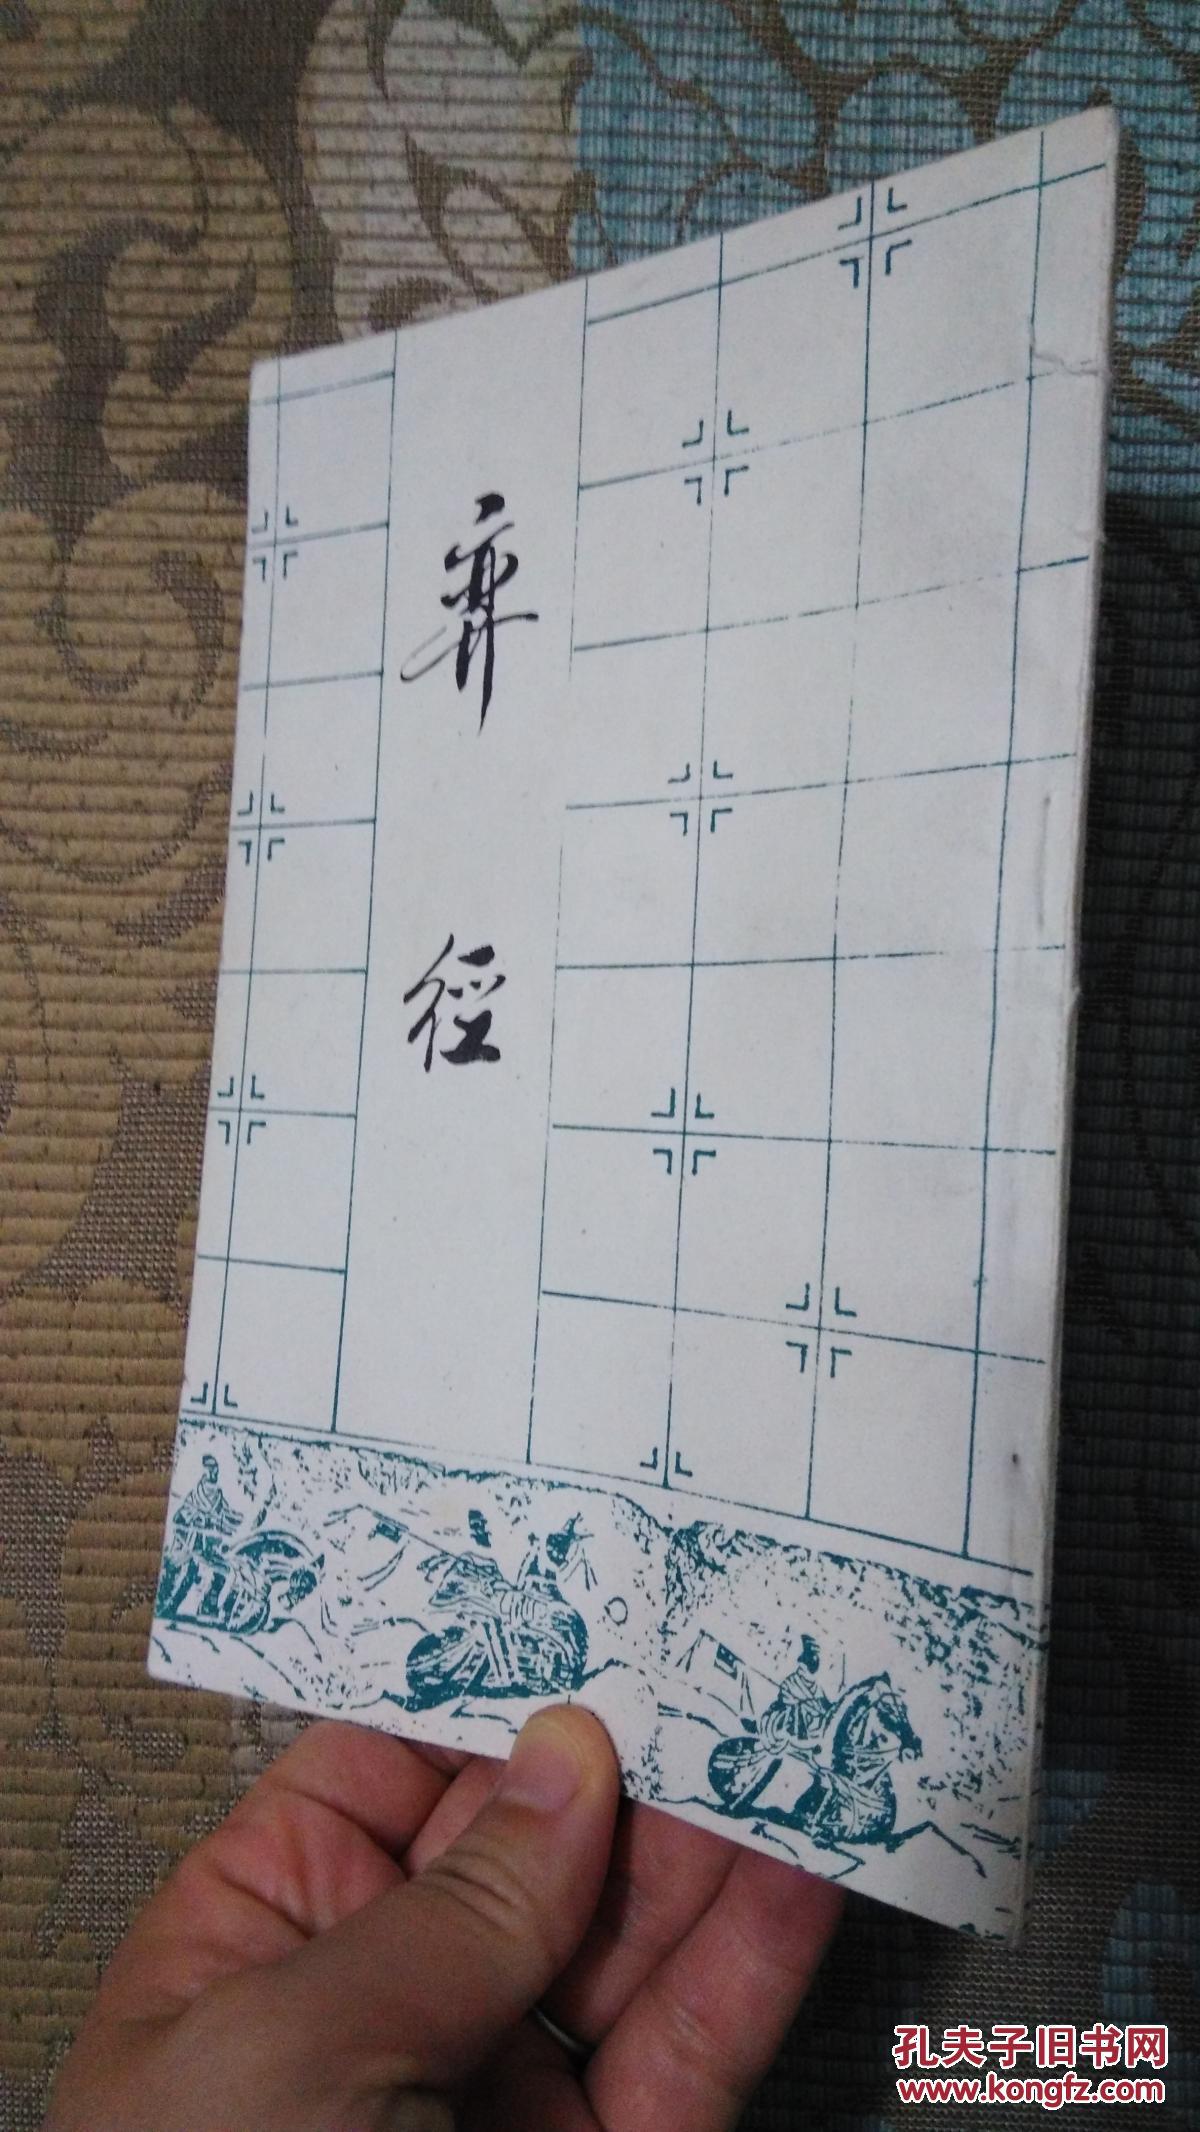 弈
徑
孔夫子旧书网
www.kongfz.com